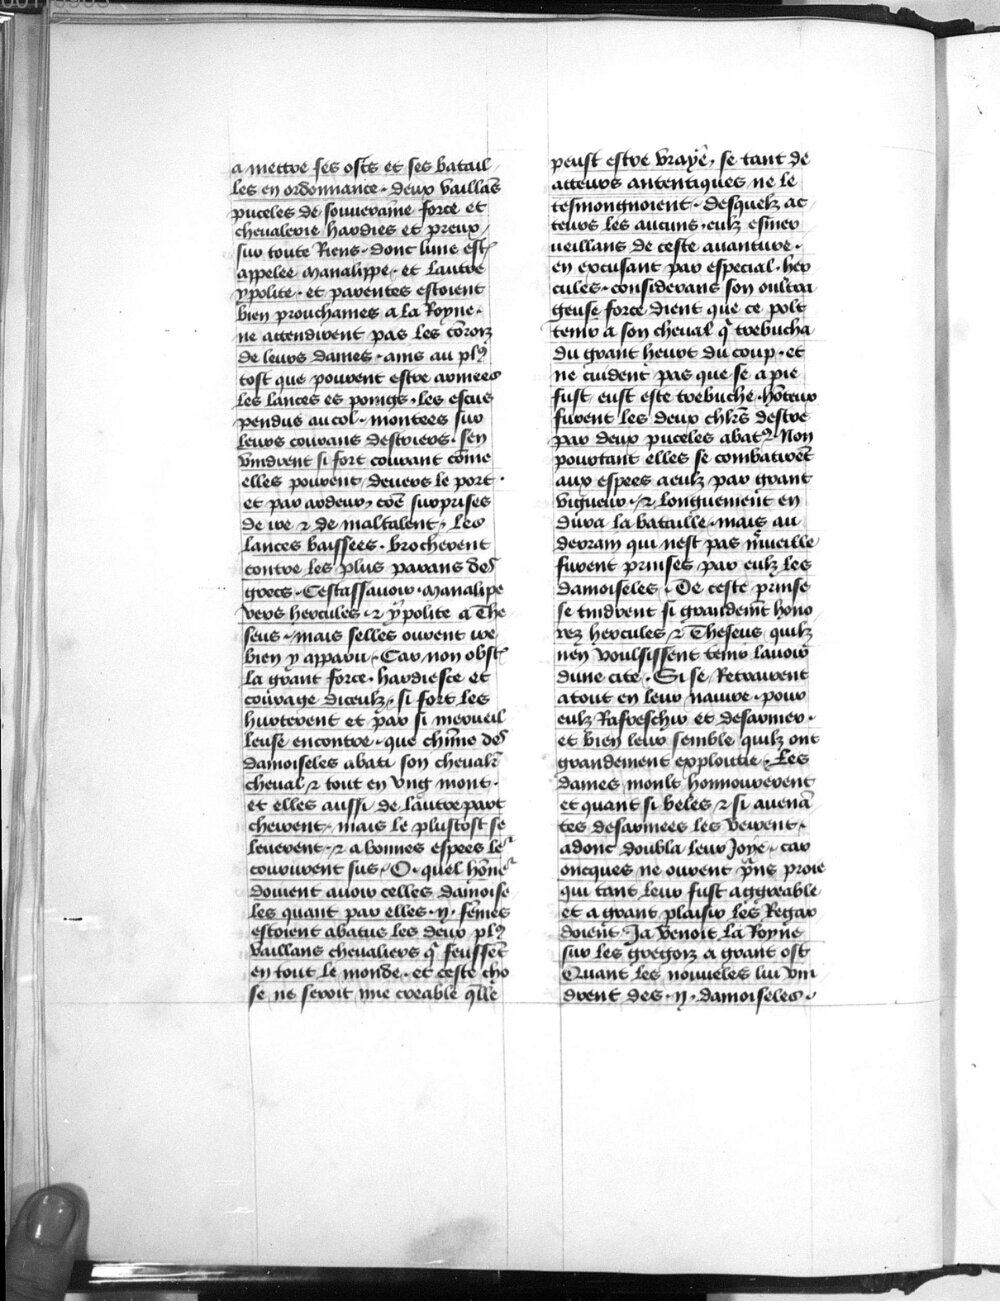 a mettre ses osts et ses batail
les en ordonnance. deux vaillās
puceles de souveraine force et
chevalerie hardies et preux
sur toute Riens. dont lune est
appelee manalippe. et lautre
ypolite. et parentes estoient
bien prouchaines a la Royne.
ne attendirent pas les cōroiz
de leurs dames. ains au pl9
tost que pourent estre armees
les lances es poings. les escus
pendus au col. montees sur
leurs courans destriers. sen
vindrent si fort courant cōme
elles pourent, devers le port.
et par ardeur, cōē surprises
de ire ⁊ de maltalent, les
lances baissees. brocherent
contre les plus parans des
grecs. Cestassavoir. manalipe
vers hercules. ⁊ ypolite a The
seus. mais selles ourent ire
bien y apparu. Car non obst
la grant force. hardiesce et
courage diceulz, si fort les
hurterent et par si merveil
leuse encontre. que chūne des
damoiseles abati son chevalr
cheval ⁊ tout en ung mont.
et elles aussi de lautre part
cheirent. mais le plustost se
leverent. ⁊ a bonnes espees le
coururent sus. O. quel hōne
doivent avoir celles damoise
les quant par elles .ij. fēmes
estoient abatus les deux pl9
vaillans chevaliers q̄ feussēt
en tout le monde. et ceste cho
se ne seroit mie creable q̄lle
peust estre vraye, se tant de
acteurs antentiques ne le
tesmongnoient. desquelz ac
teurs les aucuns. eulz esmer
veillans de ceste avanture.
en excusant par especial. her
cules. considerans son oultra
geuse force dient que ce polt
tenir a son cheval q̄ trebucha
du grant heurt du coup. et
ne cuident pas que se a pie
fust eust este trebuche. hōteux
furent les deux chl̄rs destre
par deux puceles abat9. Non
pourtant elles se combatirēt
aux espees a eulz par grant
vigueur. ⁊ longuement en
dura la bataille. mais au
derrain qui nest pas m̄veille
furent prinses par eulz les
damoiseles. De ceste prinse
se tindrent si grandem̄t hono
rez hercules ⁊ Theseus quilz
nen voulsissent tenir lavoir
dune cite. Si se Retrairent
atout en leur navire. pour
eulz Rafreschir et desarmer.
et bien leur semble quilz ont
grandement exploitie. Les
dames moult honnourerent
et quant si beles ⁊ si avenā
tes desarmees les veirent.
adonc doubla leur Joye. car
oncques ne ourent p̄ns proie
qui tant leur fust aggreable
et a grant plaisir les Regar
doient. Ja venoit la Royne
sur les gregoiz a grant ost
Quant les nouveles lui vin
drent des .ij. damoiseles.